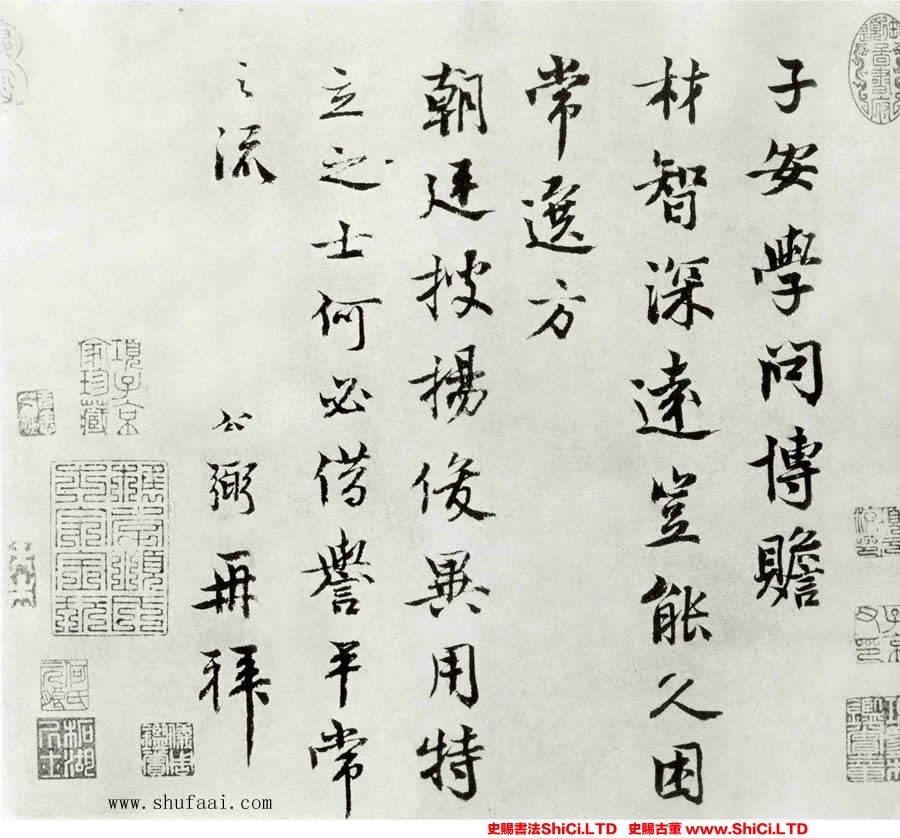 子安學問博贍
材智深遠豈能久困
常選方
朝廷搜揚俊異用特
立之士何必借譽平常
之流
公弼再拜
項子京家珍藏
www.shufaai.com
史賜書法ShiCi.LTD 史賜古董 www.ShiCi.LTD